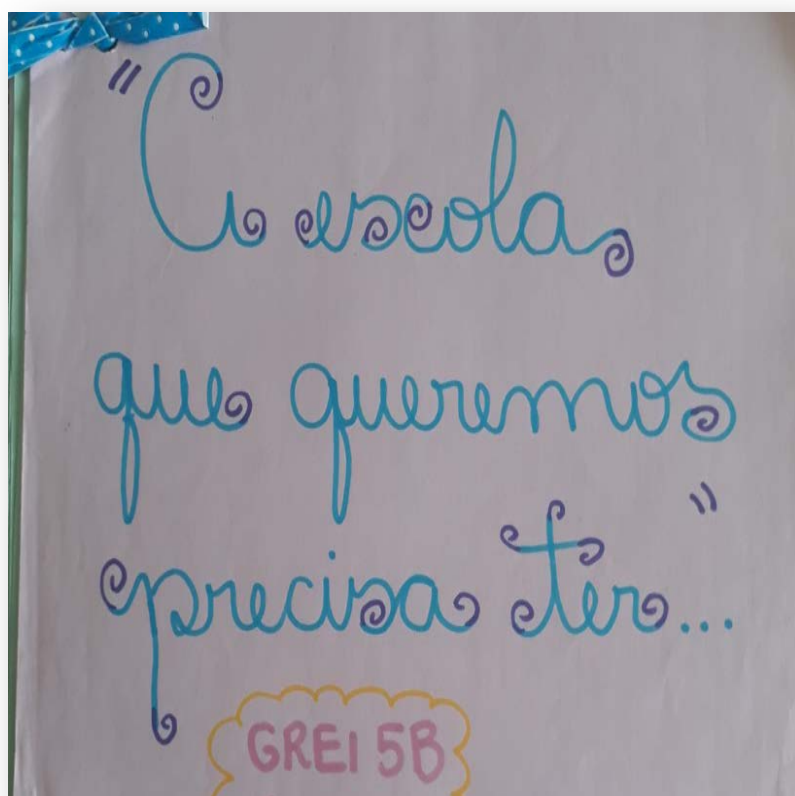 "A escola
que queremos
precisa ter..."
GREI 5B